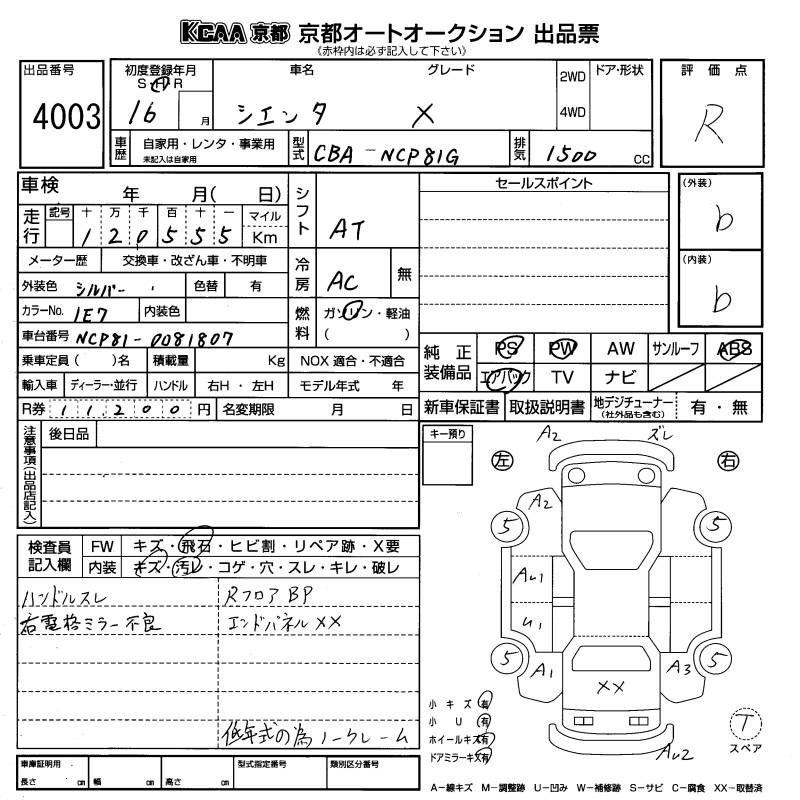 KCAA 京都 京都オートオークション 出品票
(赤枠内は必ず記入して下さい)
出品番号 4003
初度登録年月 S H R 16 月
車名 シエンタ
グレード X
2WD 4WD
ドア・形状
評価点 R
車歴 自家用・レンタ・事業用 未記入は自家用
型式 CBA-NCP81G
排気 1500 CC
車検 年 月( 日)
シフト AT
セールスポイント
(外装) b
走行 記号 十 万 千 百 十 一 マイル Km
1 2 0 5 5 5
メーター歴 交換車・改ざん車・不明車
冷房 AC 無
(内装) b
外装色 シルバー 色替 有
カラーNo. 1E7 内装色
燃料 ガソリン・軽油 ( )
車台番号 NCP81-0081807
純正装備品 PS PW AW サンルーフ ABS
エアバック TV ナビ
乗車定員 ( )名 積載量 Kg NOX 適合・不適合
輸入車 ディーラー・並行 ハンドル 右H・左H モデル年式 年
R券 11200 円 名変期限 月 日
新車保証書 取扱説明書 地デジチューナー (社外品も含む) 有・無
注意事項(出品店記入) 後日品
キー預り
A2 ズレ
左 右
A2
5 5
検査員記入欄 FW キズ・飛石・ヒビ割・リペア跡・X要
内装 キズ・汚レ・コゲ・穴・スレ・キレ・破レ
ハンドルスレ RフロアBP
右電格ミラー不良 エンドパネルXX
AU1
U1
5 5
A1 A3
XX
低年式の為ノークレーム
小キズ 有
小U 有
ホイールキズ 有
ドアミラーキズ 有
AU2
T
スペア
車庫証明用 長さ cm 幅 cm 高さ cm
型式指定番号 類別区分番号
A-線キズ M-調整跡 U-凹み W-補修跡 S-サビ C-腐食 XX-取替済